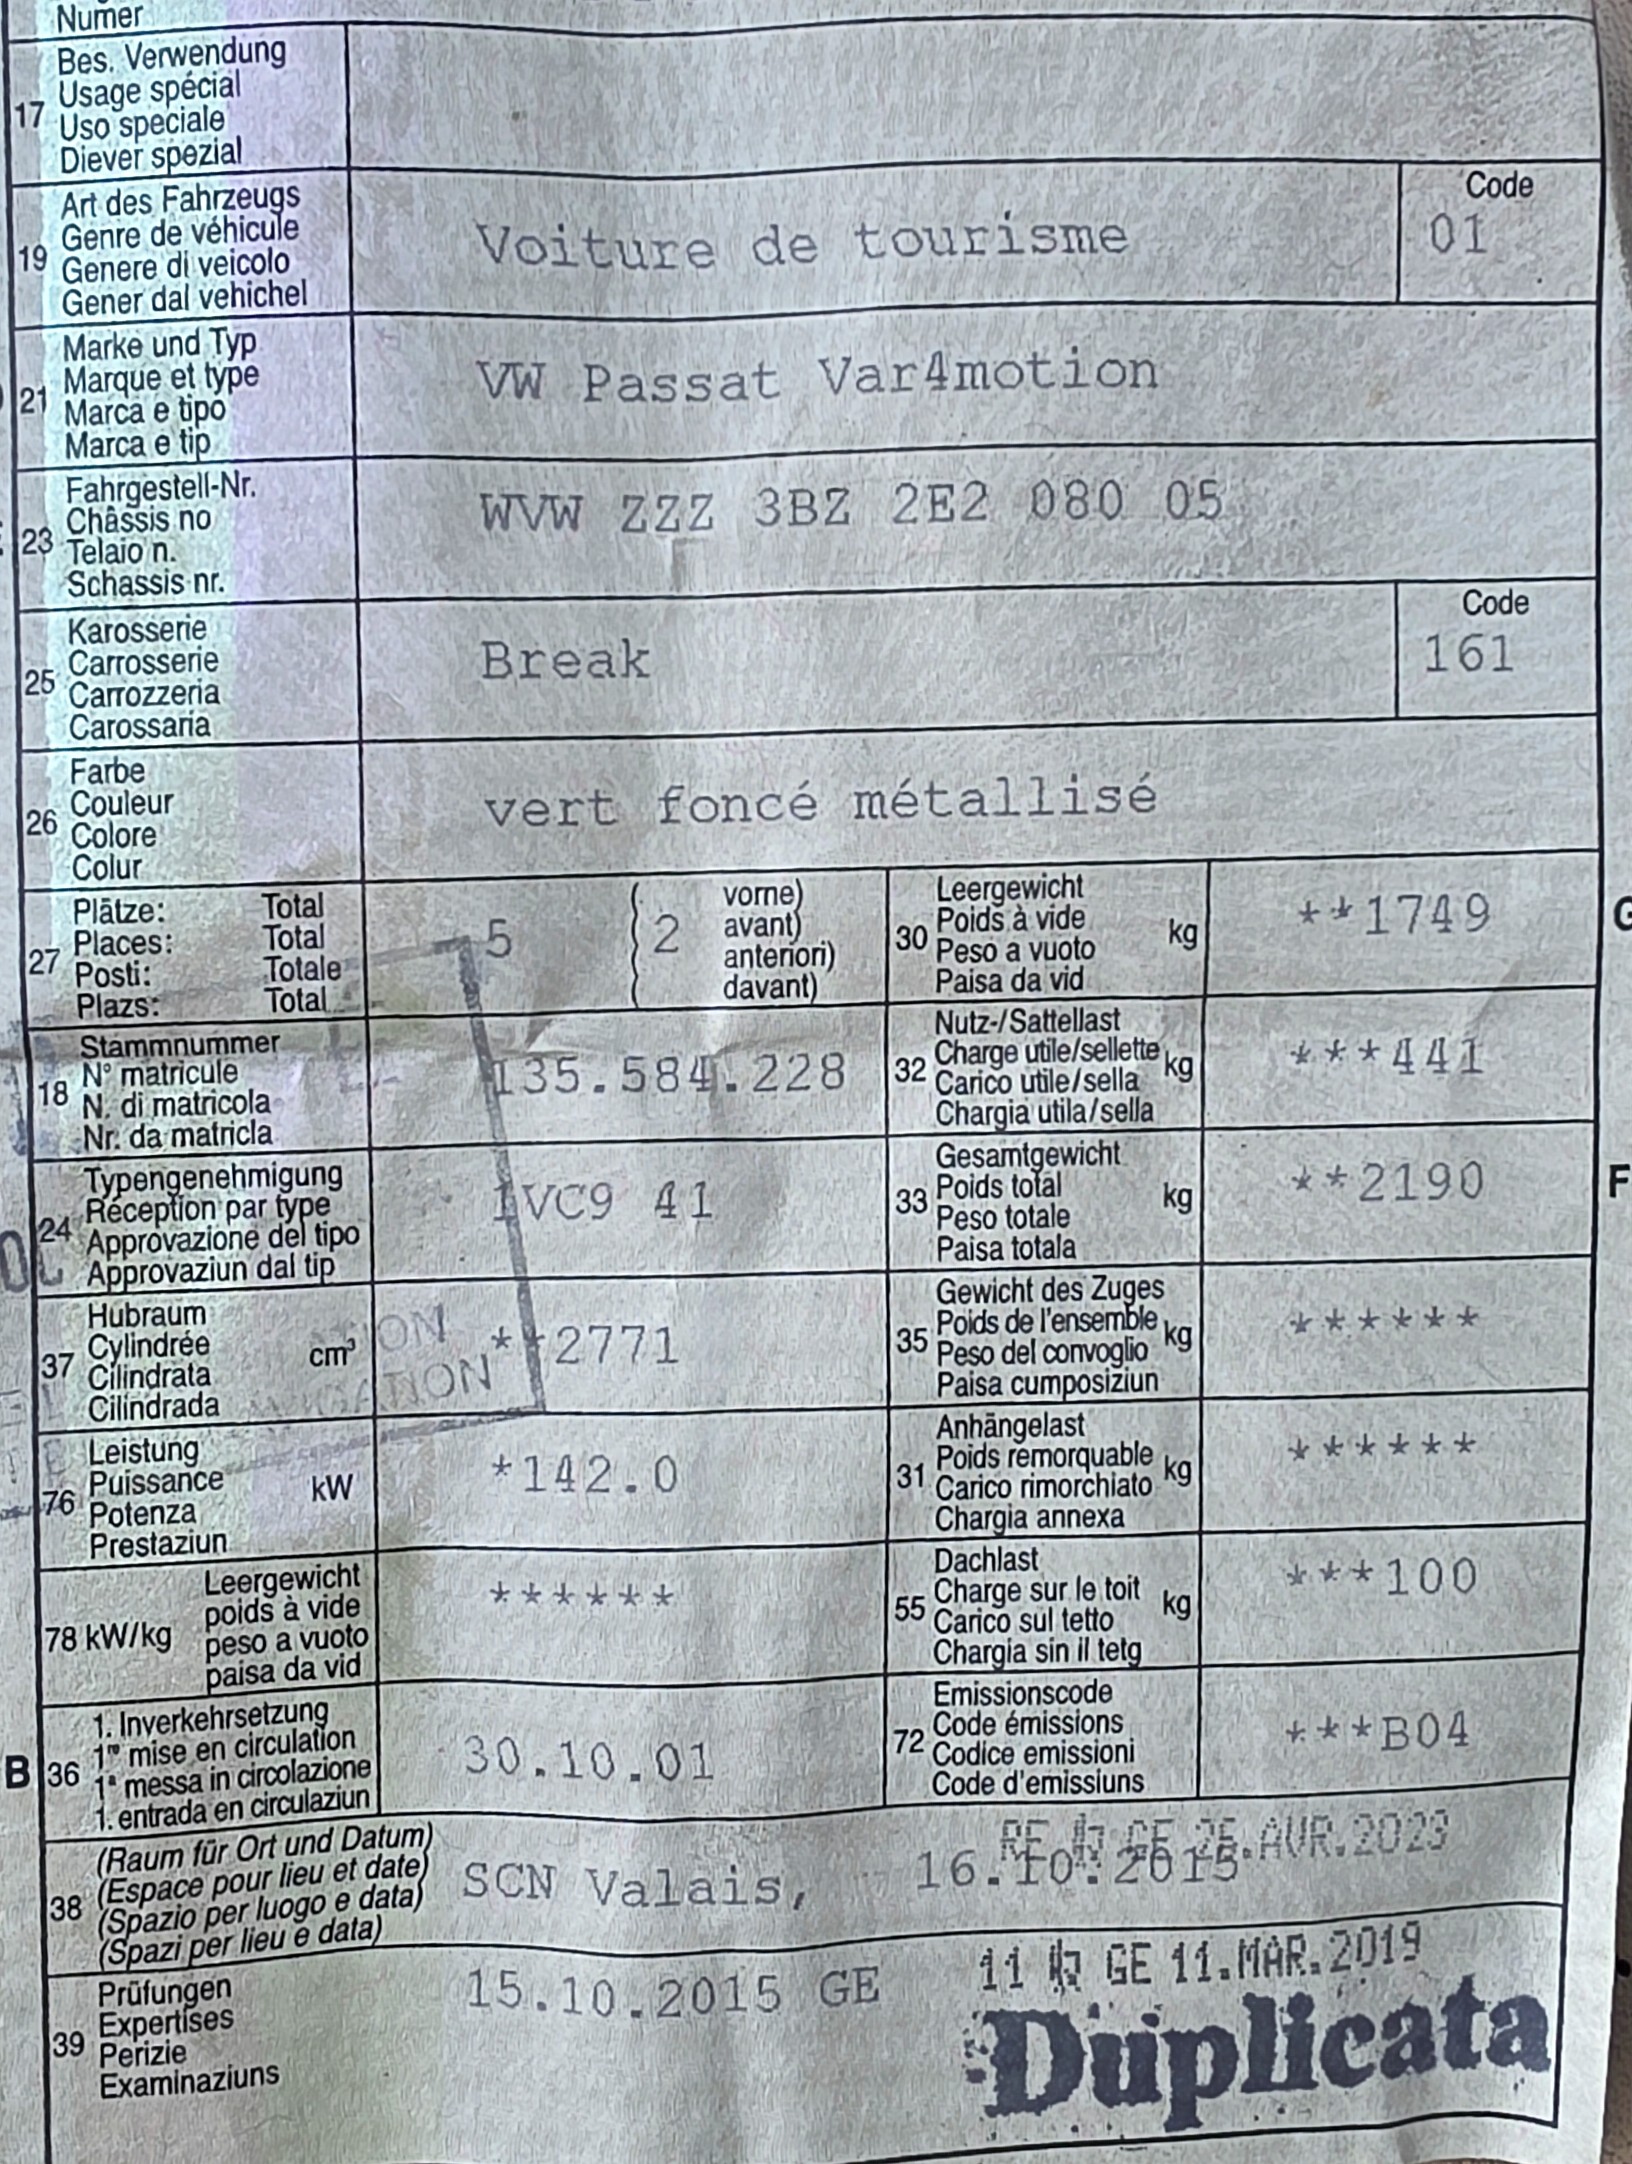 Numer
17
Bes. Verwendung
Usage spécial
Uso speciale
Diever spezial
19
Art des Fahrzeugs
Genre de véhicule
Genere di veicolo
Gener dal vehichel
Voiture de tourisme
Code
01
21
Marke und Typ
Marque et type
Marca e tipo
Marca e tip
VW Passat Var4motion
23
Fahrgestell-Nr.
Châssis no
Telaio n.
Schassis nr.
WVW ZZZ 3BZ 2E2 080 05
25
Karosserie
Carrosserie
Carrozzeria
Carossaria
Break
Code
161
26
Farbe
Couleur
Colore
Colur
vert foncé métallisé
27
Plätze: Total
Places: Total
Posti: Totale
Plazs: Total
5
2
vorne)
avant)
anteriori)
davant)
30
Leergewicht
Poids à vide
Peso a vuoto
Paisa da vid
kg
**1749
G
18
Stammnummer
N° matricule
N. di matricola
Nr. da matricla
135.584.228
32
Nutz-/Sattellast
Charge utile/sellette
Carico utile/sella
Chargia utila/sella
kg
***441
24
Typengenehmigung
Réception par type
Approvazione del tipo
Approvaziun dal tip
1VC9 41
33
Gesamtgewicht
Poids total
Peso totale
Paisa totala
kg
**2190
F
37
Hubraum
Cylindrée
Cilindrata
Cilindrada
cm³
**2771
35
Gewicht des Zuges
Poids de l'ensemble
Peso del convoglio
Paisa cumposiziun
kg
******
76
Leistung
Puissance
Potenza
Prestaziun
kW
*142.0
31
Anhängelast
Poids remorquable
Carico rimorchiato
Chargia annexa
kg
******
78 kW/kg
Leergewicht
poids à vide
peso a vuoto
paisa da vid
******
55
Dachlast
Charge sur le toit
Carico sul tetto
Chargia sin il tetg
kg
***100
B
36
1. Inverkehrsetzung
1re mise en circulation
1a messa in circolazione
1. entrada en circulaziun
30.10.01
72
Emissionscode
Code émissions
Codice emissioni
Code d'emissiuns
***B04
38
(Raum für Ort und Datum)
(Espace pour lieu et date)
(Spazio per luogo e data)
(Spazi per lieu e data)
SCN Valais, 16.10.2015
GE 25.AVR.2023
39
Prüfungen
Expertises
Perizie
Examinaziuns
15.10.2015 GE
11 GE 11.MAR.2019
Duplicata